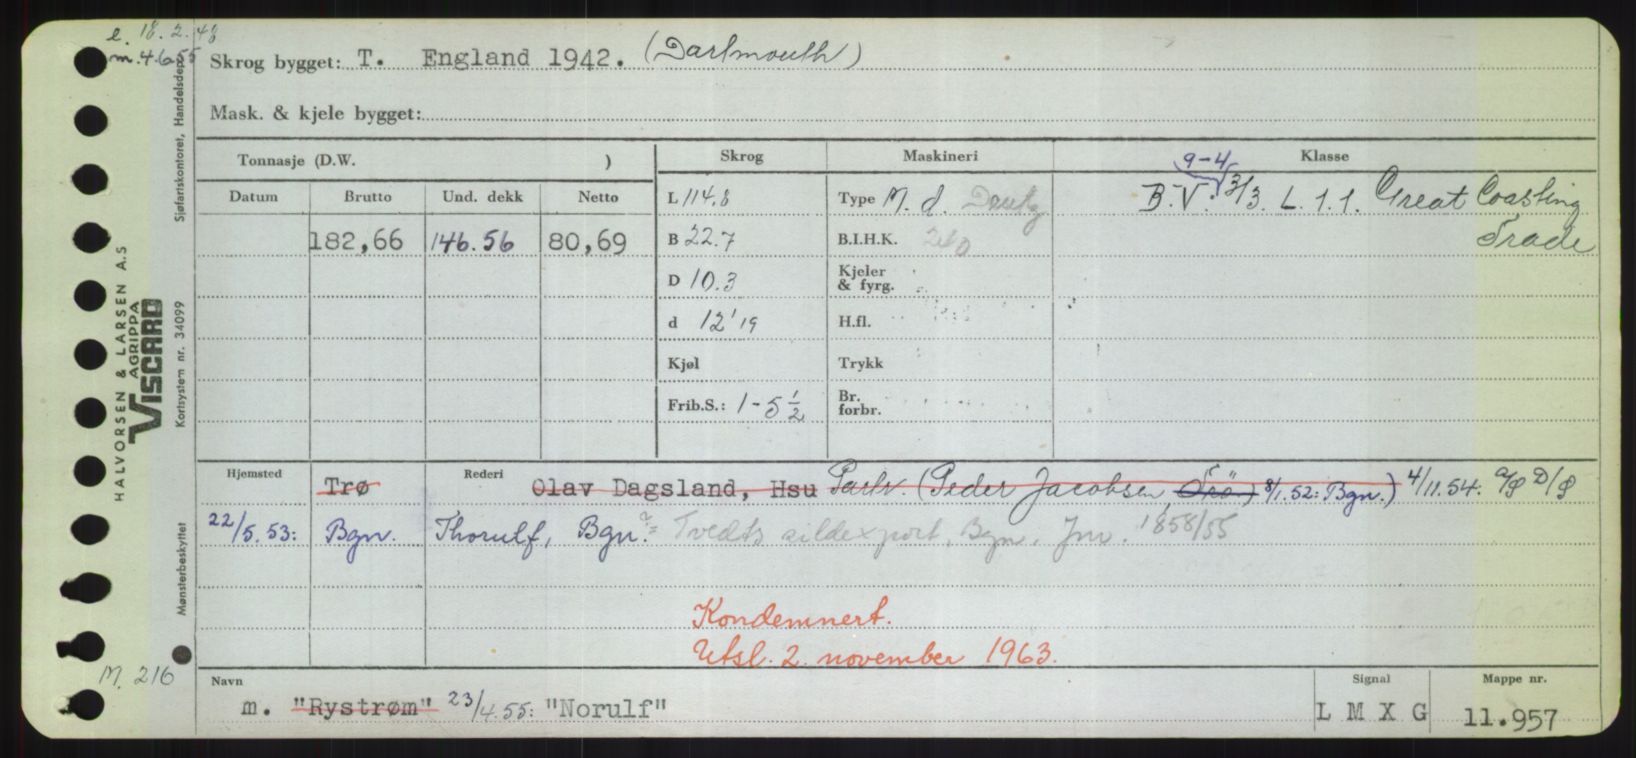 e. 18.2.48
m. 4.6.55
Skrog bygget: T. England 1942. (Dartmouth)
Mask. & kjele bygget:
Tonnasje (D.W. )
Skrog
Maskineri
Klasse
Datum Brutto Und. dekk Netto
182,66 146.56 80,69
L 114.8
B 22.7
D 10.3
d 12'19
Kjøl
Frib.S.: 1-5 1/2
Type M. d. Deutz
B.I.H.K.
Kjeler & fyrg.
H.fl.
Trykk
Br. forbr.
9-4
B.V. 3/3. L. 1.1. Great Coasting
Trade
Hjemsted Rederi
Trø Olav Dagsland, Hsu Partr. (Peder Jacobsen, Trö) 8/1.52: Bgn.) 4/11.54. A/S D/S
22/5.53: Bgn. Thorulf, Bgn. Tvedts sildexport, Bgn, Jnr. 1858/55
Kondemnert.
Utsl. 2. november 1963.
Navn
m. "Rystrøm" 23/4.55: "Norulf"
Signal
L M X G
Mappe nr.
11.957
M. 216
HALVORSEN & LARSEN A.S
AGRIPPA
VISCARD
Mønsterbeskyttet Kortsystem nr. 34099 Sjøfartskontoret, Handelsdep.